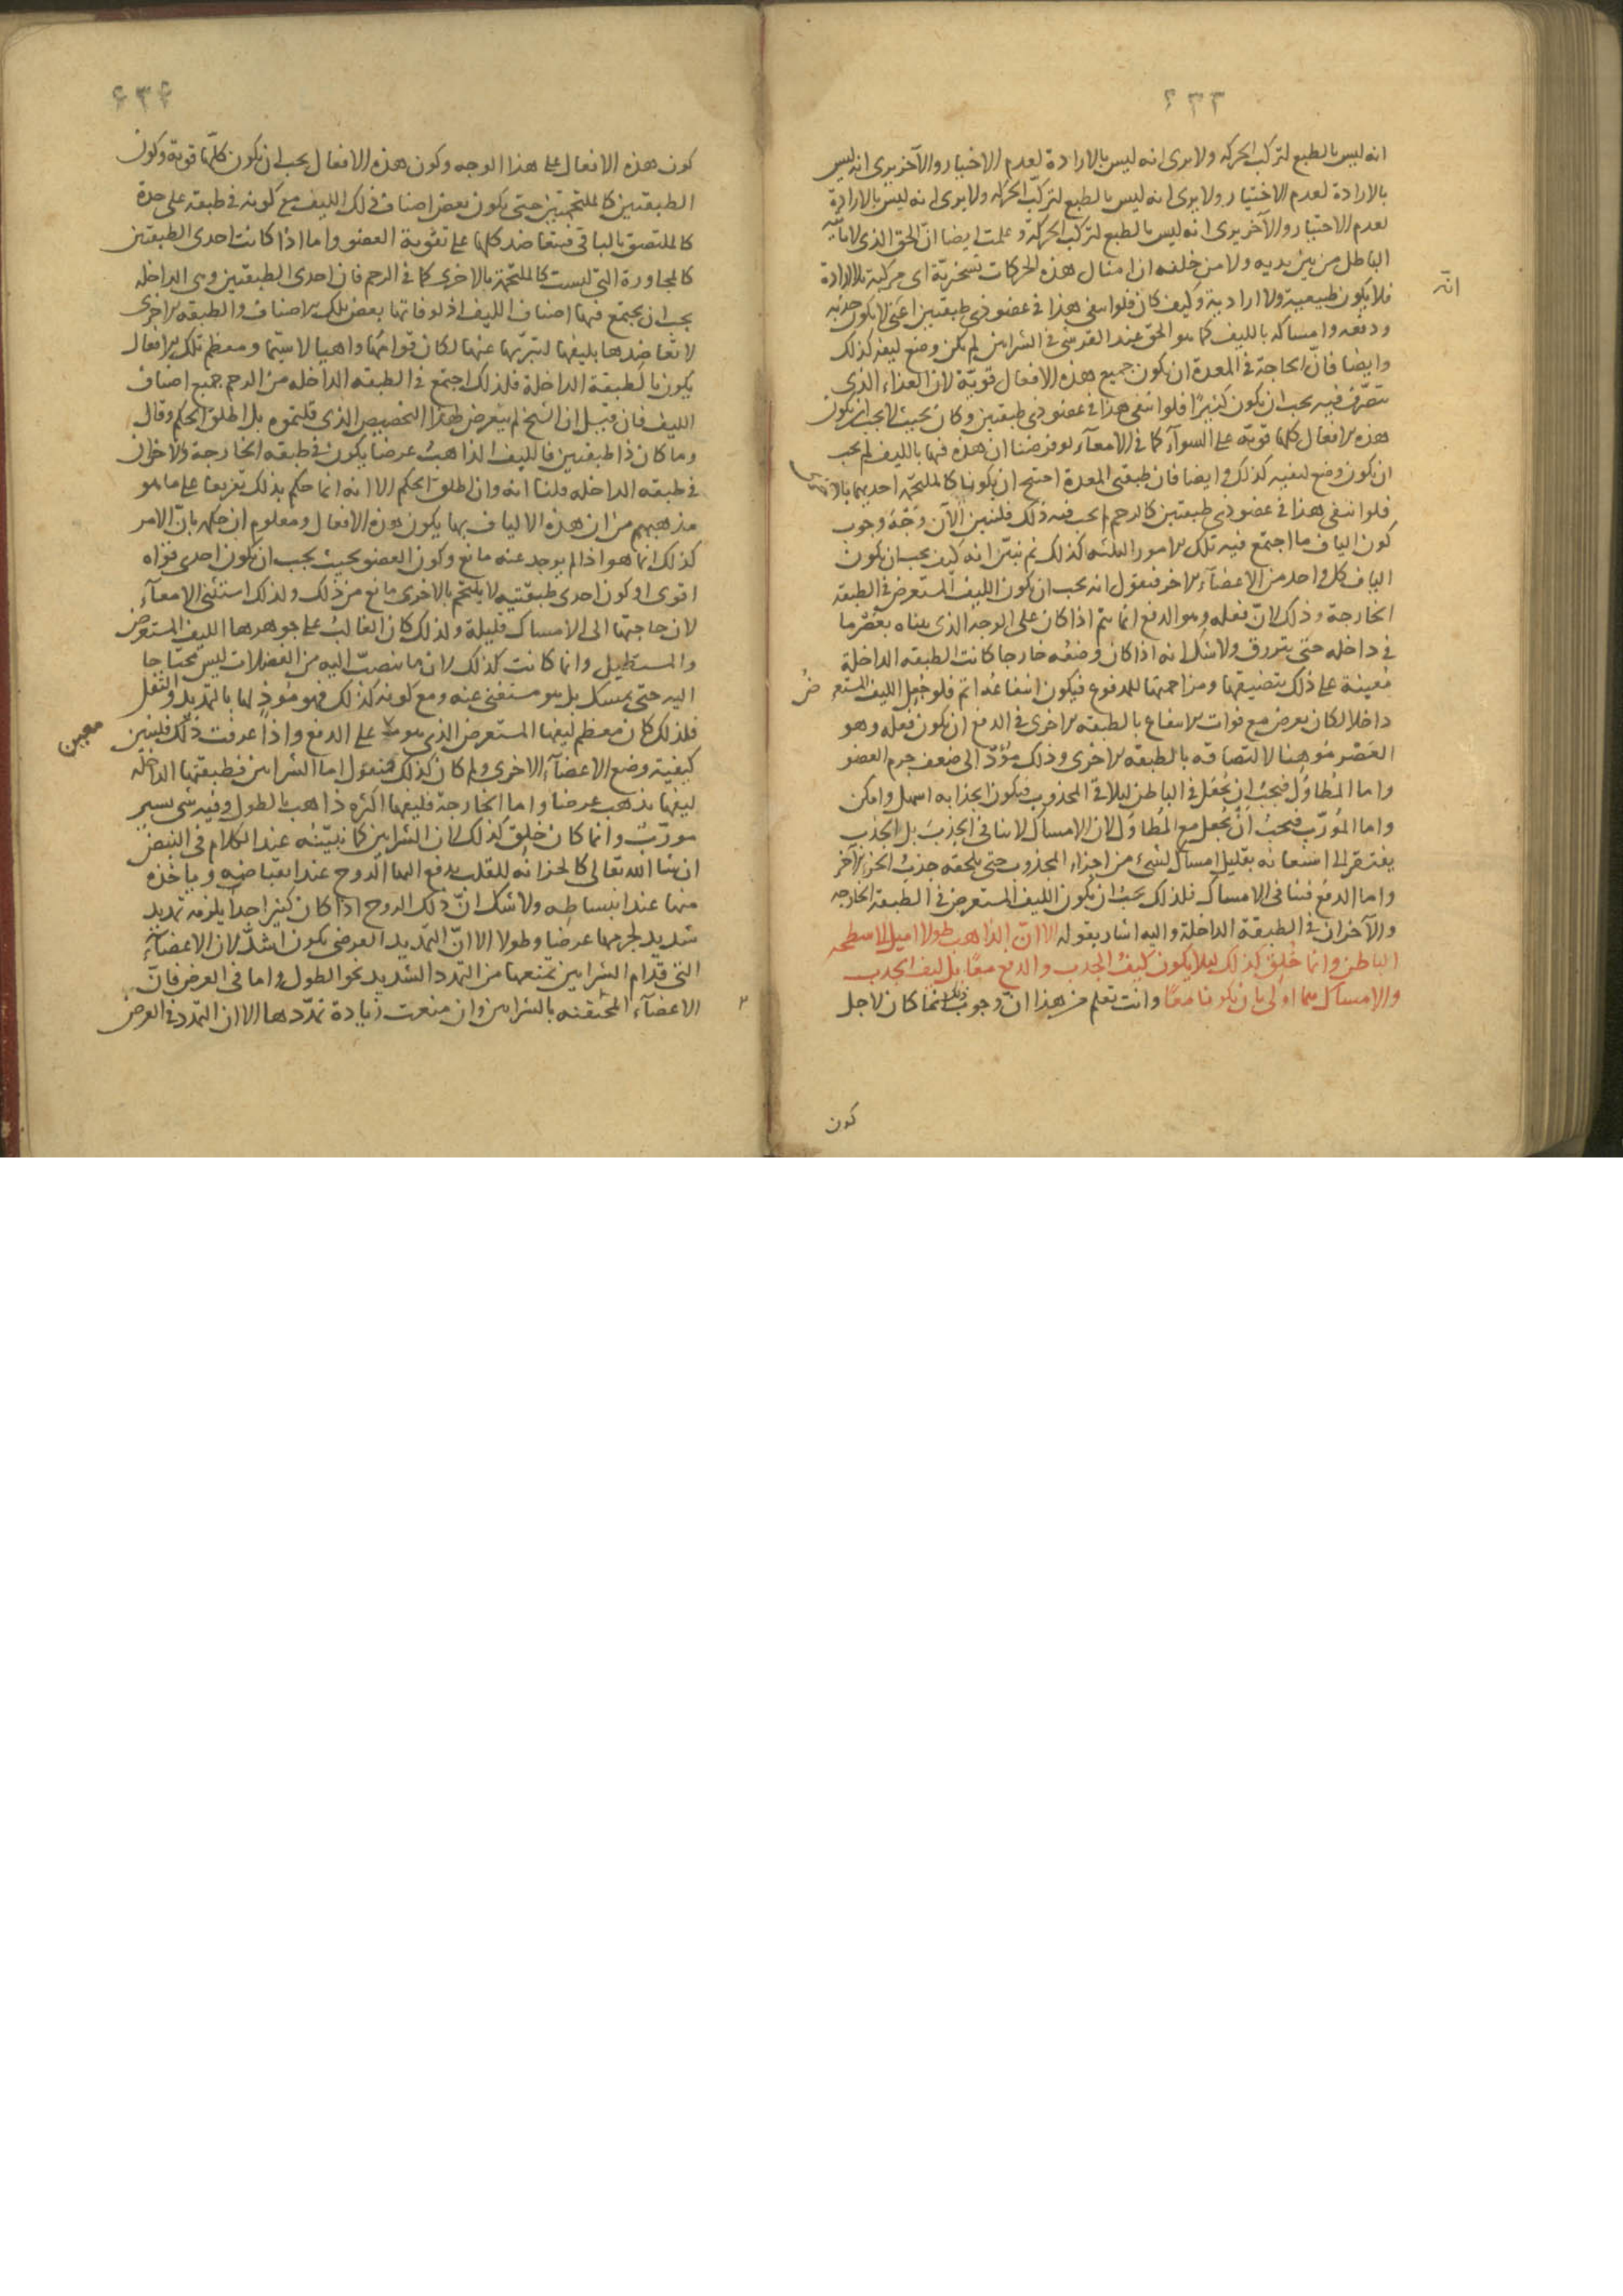 ٤٣٣
انه ليس بالطبع لتركب الحركه ولا يرى انه ليس بالارادة لعدم الاختيار والآخر يرى انه ليس
بالارادة لعدم الاختيار ولا يرى انه ليس بالطبع لتركّب الحركه ولا يرى انه ليس بالارادة
لعدم الاختيار والآخر يرى انه ليس بالطبع لتركب الحركة وعلمت ايضا ان الحق الذى لا ياتيه
الباطل من بين يديه ولا من خلفه ان امثال هذه الحركات تسخيريّة اى مركبة بلا ارادة
انه
فلا يكون طبيعية ولا ارادية وكيف كان فلو انتفى هذا فى عضو ذى طبقتين اعنى لا يكون جذبه
ودفعه وامساكه بالليف كما هو الحق عند القرشى فى الشرايين لم يكن وضع ليفه كذلك
وايضا فان الحاجة فى المعدة ان يكون جميع هذه الافعال قويّة لان الغذاء الذى
تتصرّف فيه يجب ان يكون كثيرًا فلو انتفى هذا فى عضو ذى طبقتين وكان بحيث لا يجب ان يكون
هذه الافعال كلها قويّة على السوآء كما فى الامعآء لو فرضنا ان هذه فيها بالليف لم يجب
ان يكون وضع ليفيه كذلك وايضا فان طبقتى المعدة احتيج ان يكونا كالملتحمة احديهما بالاخرى
فلو انتفى هذا فى عضو ذى طبقتين كالرحم لم يجب فيه ذلك فلنبين الآن وَجْهَ وجوب
كون الياف ما اجتمع فيه تلك الامور الثلثه كذلك ثم نبيّن انه كيف يجب ان يكون
الياف كل واحد من الاعضآء الاخر فنقول انه يجب ان يكون الليف المستعرض فى الطبقة
الخارجة وذلك لانّ فعله وهو الدفع انما يتم اذا كان على الوجه الذى بيناه بعَصْر ما
فى داخله حتى يتزرق ولا شك انه اذا كان وضعُه خارجا كانت الطبقه الداخلة
مُعينة على ذلك بتضييقها ومزاحمتها للمدفوع فيكون انتفاعُه اتم فلو جُعِل الليف المستعرض
داخلا لكان يعرض مع فوات الانتفاع بالطبقه الاخرى فى الدفع ان يكون فعله وهو
العَصْر مُوهِنا لالتصاقه بالطبقه الاخرى وذلك مؤدّ الى ضعف جرم العضو
واما المُطاوِل فيجب ان يُجعَل فى الباطن ليلاقى المجذوب فيكون انجذابه اسهل وامكن
واما المُوَرّب فيجب أنْ يُجعل مع المُطاوِل لان الامساك لا ينافى الجذبَ بل الجذب
يفتقر الى استعانة بقليل امساك لشىء من اجزاء المجذوب حتى يلحقه جذب الجزء الآخر
واما الدفع فينافى الامساك فلذلك يجب ان يكون الليف المستعرض فى الطبقة الخارجه
والآخران فى الطبقة الداخلة واليه اشار بقوله الا انّ الذاهب طولا اميل الى سطحه
الباطن وانما خُلق كذلك ليلا يكون ليف الجذب والدفع معًا بل ليف الجذب
والامساك هما اولى بان يكونا معًا وانت تعلم من هذا انّ وجوب ذلك انما كان لاجل
كون
٤٣٤
كون هذه الافعال على هذا الوجه وكون هذه الافعال يجب ان يكون كلّها قوية وكون
الطبقتين كالملتحمتين حتى يكون بعض اصناف ذلك الليف مع كونه فى طبقة على حدة
كالملتصق بالباقى فيتعاضد كلها على تقوية العضو واما اذا كانت احدى الطبقتين
كالمجاورة التى ليست كالملتحمة بالاخرى كما فى الرحم فان احدى الطبقتين وهى الداخله
يجب ان يجتمع فيها اصناف الليف اذ لو فاتها بعض تلك الاصناف والطبقه الاخرى
لا تعاضدها بليفها لتبرّيها عنها لكان قوامُها واهيا لا سيّما ومعظم تلك الافعال
يكون بالطبقة الداخلة فلذلك اجتمع فى الطبقه الداخله من الرحم جميع اصناف
الليف فان قيل ان الشيخ لم يتعرض لهذا التخصيص الذى قلتموه بل اطلق الحكم وقال
وما كان ذا طبقتين فالليف الذاهبُ عرضا يكون فى طبقته الخارجة والاخران
فى طبقته الداخله قلنا انه وان اطلق الحكم الا انه انما حكم بذلك تفريعا على ما هو
مذهبهم من ان هذه الالياف بها يكون هذه الافعال ومعلوم ان حكمه بانّ الامر
كذلك انما هو اذا لم يوجد عنه مانع وكون العضو بحيث يجب ان يكون احدى قواه
اقوى او كون احدى طبقتيه لا يلتحم بالاخرى مانع من ذلك ولذلك استثنى الامعآء
لان حاجتها الى الامساك قليلة ولذلك كان الغالبُ على جوهرها الليف المستعرض
والمستطيل وانما كانت كذلك لان ما ينصبّ اليه من الفضلات ليس محتاجا
اليه حتى يمسك بل هو مستغنى عنه ومع كونه كذلك فهو مُوذٍ لها بالتمديد والثقل
فلذلك كان معظم ليفها المستعرض الذى هو معين على الدفع واذا عرفت ذلك فلنبين
معين
كيفية وضع الاعضآء الاخرى ولم كان كذلك فنقول اما الشرايين فطبقتها الداخلة
ليفها يذهب عرضا واما الخارجة فليفها اكثره ذاهب بالطول وفيه شى يسير
مورّبٌ وانما كان خلق كذلك لان الشرايين كما نبيّنه عند الكلام فى النبض
ان شا الله تعالى كالخزانه للقلب يدفع اليها الروح عند انقباضه وياخذه
منها عند انبساطه ولا شك انّ ذلك الروح اذا كان كثيرا جدا يلزمه تمديد
شديد لجرمها عرضا وطولا الا انّ التمديد العرضى يكون اشدّ لان الاعضآء
التى قدام الشرايين تمنعها من التمدد الشديد نحو الطول واما فى العرض فانّ
الاعضآء المحتفه بالشرايين وان منعت زيادة تمدّدها الا ان التمدد فى العرض